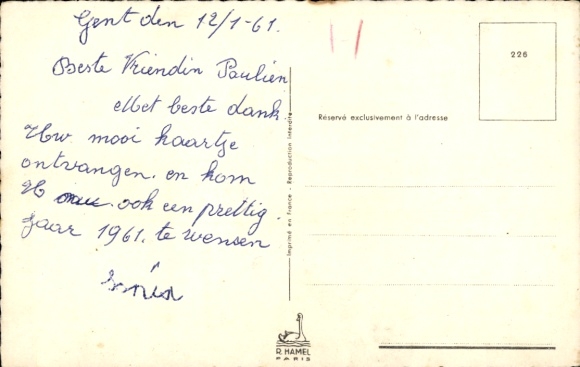 Gent den 12/1-61.
Beste Vriendin Paulien
Met beste dank
Uw mooi kaartje
ontvangen. en kom
U ook een prettig
Jaar 1961. te wensen
226
Réservé exclusivement à l'adresse
Imprimé en France - Reproduction interdite
R. HAMEL
PARIS